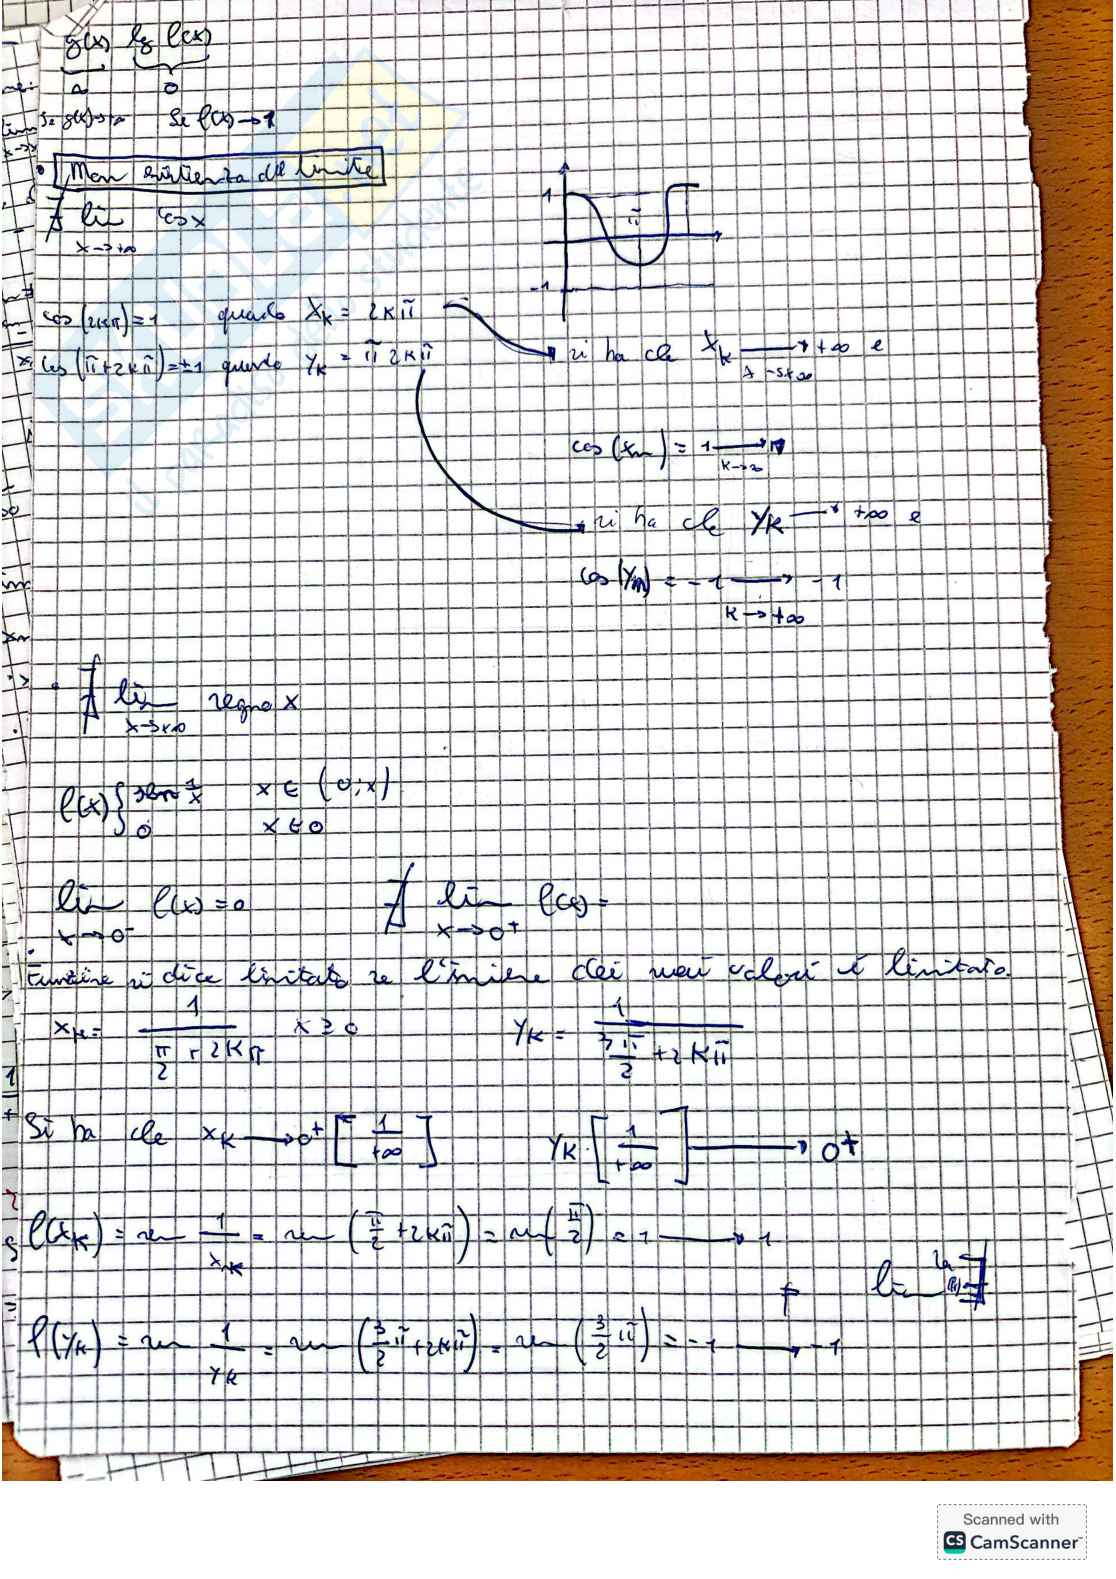 g(x) lg f(x)
∞ 0
Se g(x)→+∞ Se f(x)→1
• Non esistenza del limite
∄ lim cos x
x→+∞
1
π
-1
cos(2kπ)=1 quando Xk = 2kπ
cos(π+2kπ)=±1 quando Yk = π 2kπ
si ha che Xk → +∞ e
x→+∞
cos(xn) = 1 → 1
k→∞
si ha che Yk → +∞ e
cos(yn) = -1 → -1
k→+∞
• ∄ lim segno x
x→+∞
f(x) { sen 1/x x ∈ (0;x)
0 x ≤ 0
lim f(x) = 0 ∄ lim f(x) =
x→0⁻ x→0⁺
Funzione si dice limitata se l'insieme dei suoi valori è limitato.
xk = 1/(π/2 + 2kπ) x ≥ 0 yk = 1/(3π/2 + 2kπ)
Si ha che xk → 0⁺ [1/+∞] yk [1/+∞] → 0⁺
f(xk) = sen 1/xk = sen (π/2 + 2kπ) = sen(π/2) = 1 → 1
lim
f(yk) = sen 1/yk = sen (3/2 π + 2kπ) = sen (3/2 π) = -1 → -1
Scanned with
CS CamScanner